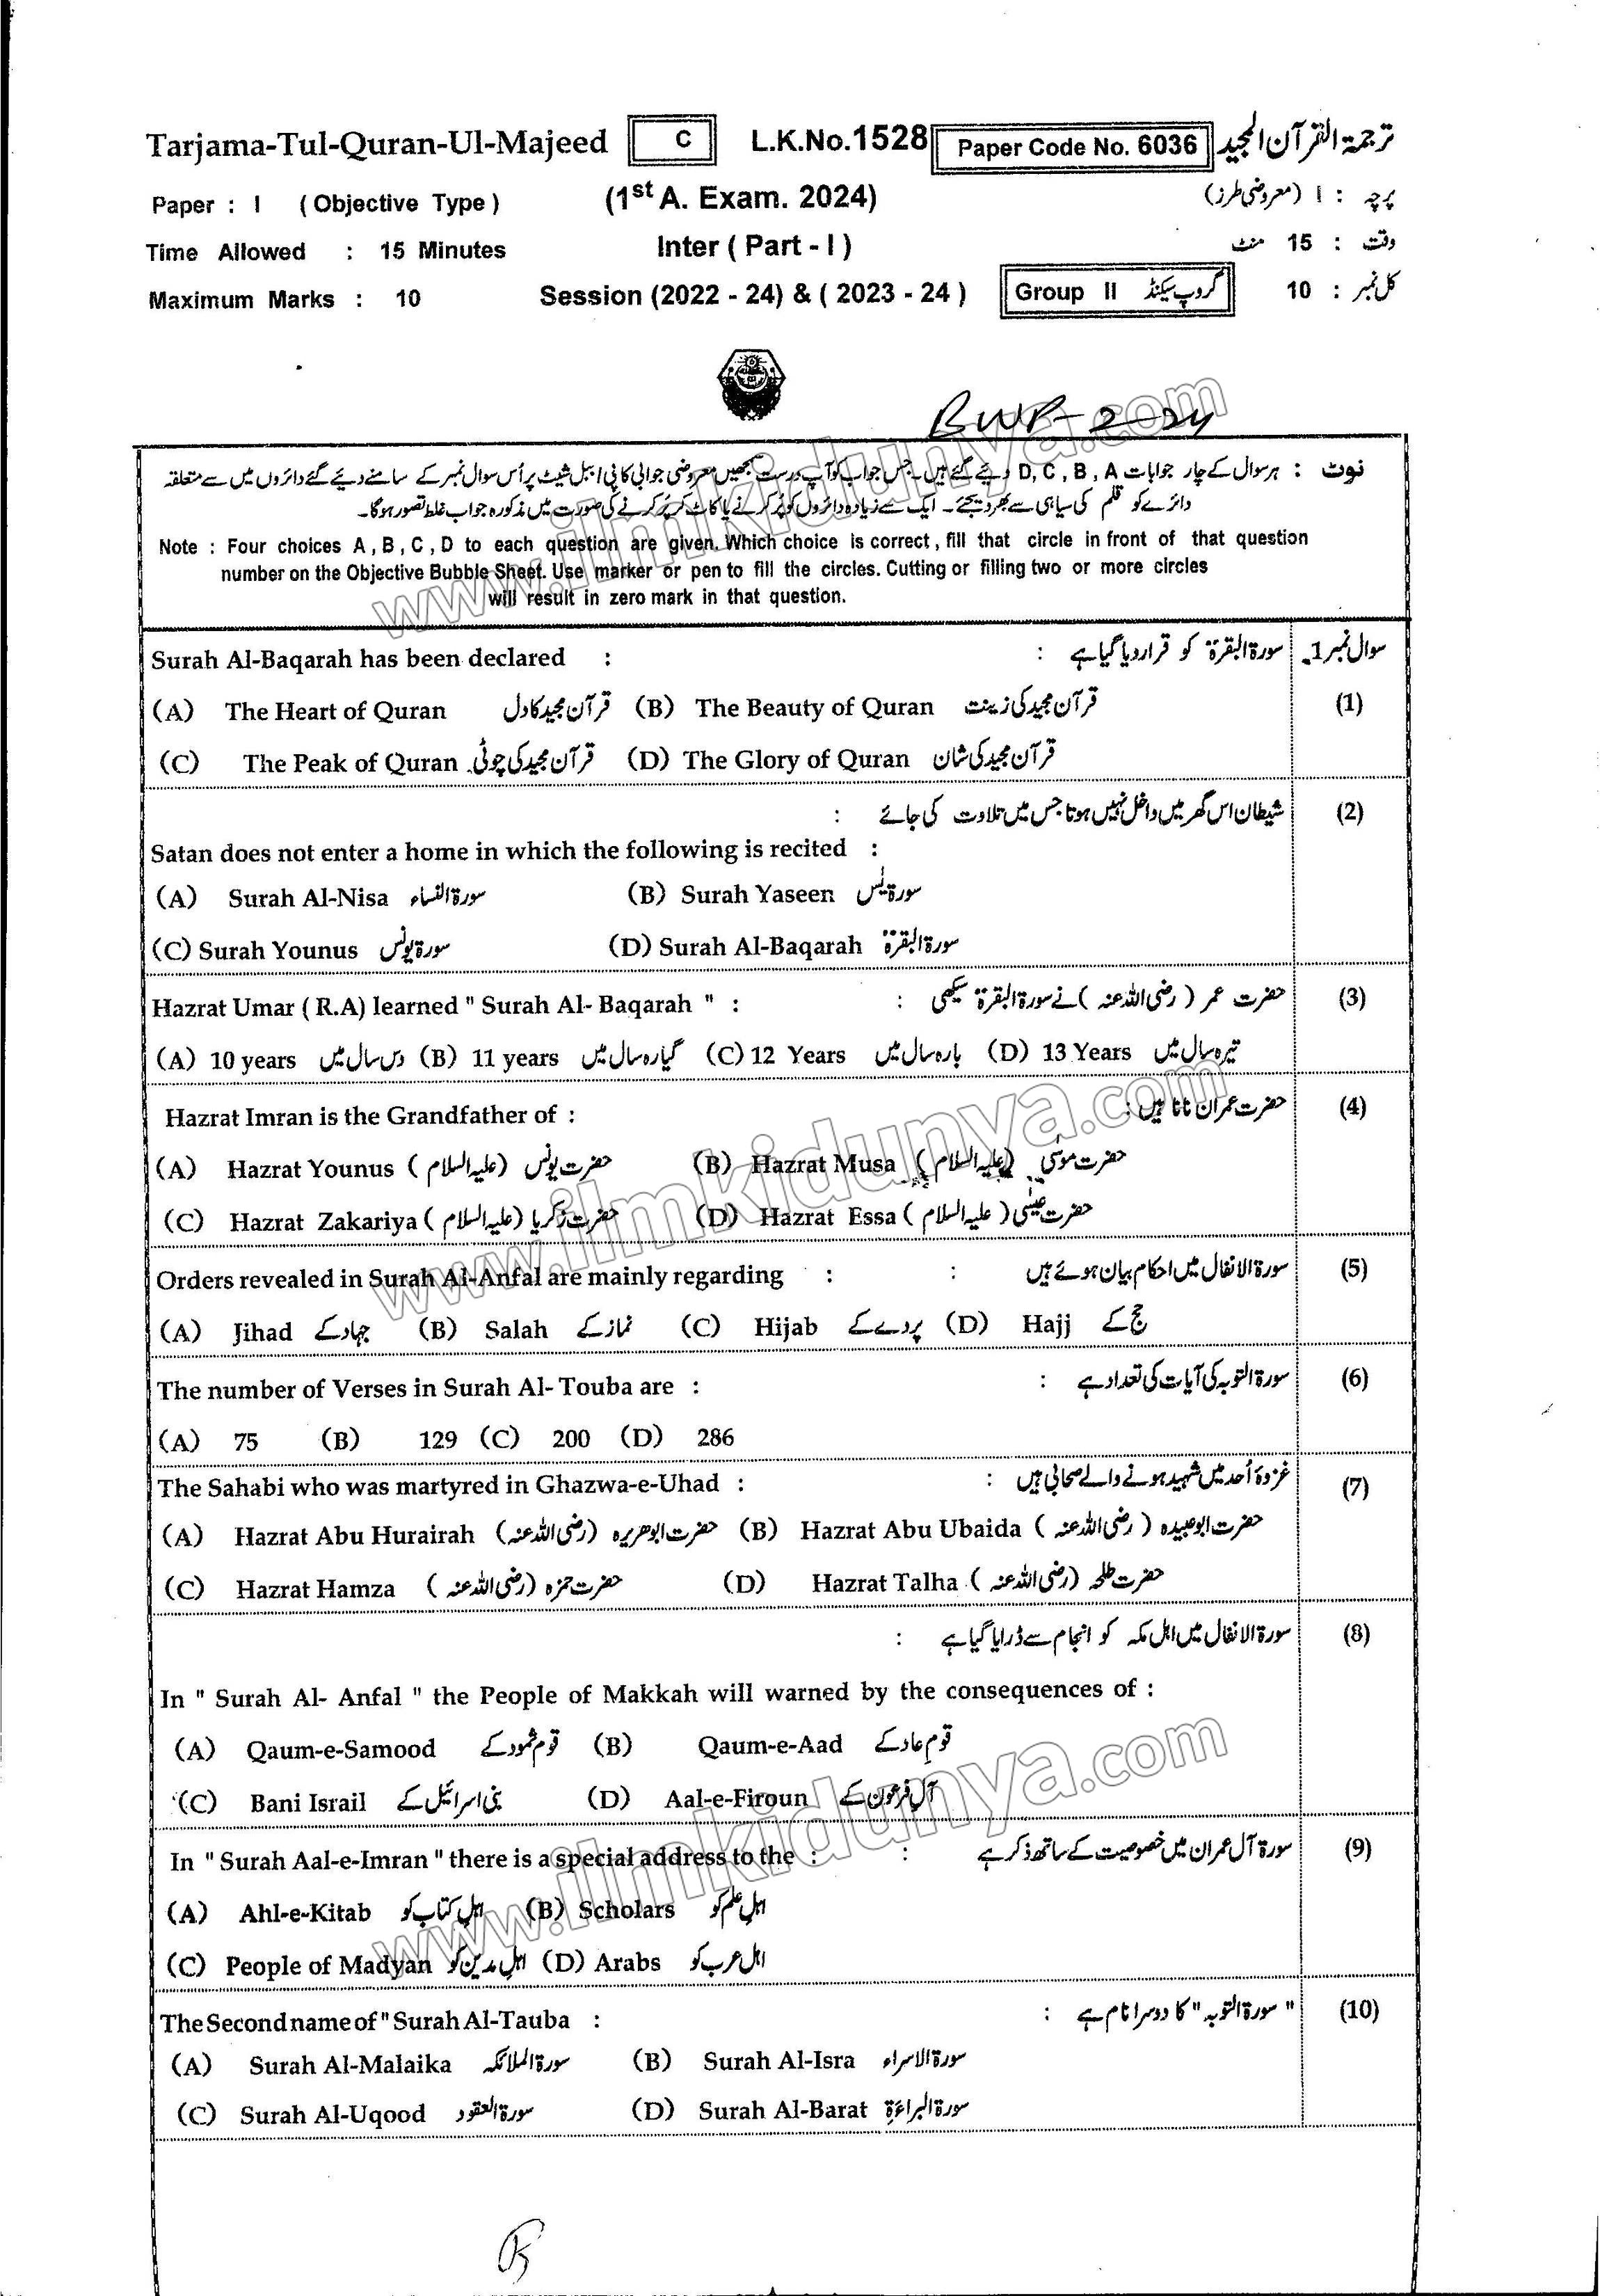 Tarjama-Tul-Quran-Ul-Majeed C L.K.No.1528 Paper Code No. 6036 ترجمۃ القرآن المجید
Paper : I ( Objective Type ) (1st A. Exam. 2024) پرچہ : I (معروضی طرز)
Time Allowed : 15 Minutes Inter ( Part - I ) وقت : 15 منٹ
Maximum Marks : 10 Session (2022 - 24) & ( 2023 - 24 ) Group II گروپ سیکنڈ کل نمبر : 10
BWP-2-24
نوٹ : ہر سوال کے چار جوابات D, C, B, A دیئے گئے ہیں۔ جس جواب کو آپ درست سمجھیں معروضی جوابی کاپی / ببل شیٹ پر اُس سوال نمبر کے سامنے دیئے گئے دائروں میں سے متعلقہ
دائرے کو قلم کی سیاہی سے بھر دیجئے۔ ایک سے زیادہ دائروں کو پُر کرنے یا کاٹ کر پُر کرنے کی صورت میں مذکورہ جواب غلط تصور ہوگا۔
Note : Four choices A , B , C , D to each question are given. Which choice is correct , fill that circle in front of that question
number on the Objective Bubble Sheet. Use marker or pen to fill the circles. Cutting or filling two or more circles
will result in zero mark in that question.
www.ilmkidunya.com
Surah Al-Baqarah has been declared : سورۃ البقرۃ کو قرار دیا گیا ہے : سوال نمبر 1۔
(A) The Heart of Quran قرآن مجید کا دل (B) The Beauty of Quran قرآن مجید کی زینت (1)
(C) The Peak of Quran قرآن مجید کی چوٹی (D) The Glory of Quran قرآن مجید کی شان
شیطان اس گھر میں داخل نہیں ہوتا جس میں تلاوت کی جائے : (2)
Satan does not enter a home in which the following is recited :
(A) Surah Al-Nisa سورۃ النساء (B) Surah Yaseen سورۃ یٰس
(C) Surah Younus سورۃ یونس (D) Surah Al-Baqarah سورۃ البقرۃ
Hazrat Umar ( R.A) learned " Surah Al- Baqarah " : حضرت عمر ( رضی اللہ عنہ ) نے سورۃ البقرۃ سیکھی : (3)
(A) 10 years دس سال میں (B) 11 years گیارہ سال میں (C) 12 Years بارہ سال میں (D) 13 Years تیرہ سال میں
Hazrat Imran is the Grandfather of : حضرت عمران نانا ہیں : (4)
(A) Hazrat Younus ( حضرت یونس (علیہ السلام (B) Hazrat Musa ( حضرت موسیٰ (علیہ السلام
(C) Hazrat Zakariya ( حضرت زکریا (علیہ السلام (D) Hazrat Essa ( حضرت عیسیٰ (علیہ السلام
www.ilmkidunya.com
Orders revealed in Surah Al-Anfal are mainly regarding : سورۃ الانفال میں احکام بیان ہوئے ہیں : (5)
(A) Jihad جہاد کے (B) Salah نماز کے (C) Hijab پردے کے (D) Hajj حج کے
The number of Verses in Surah Al- Touba are : سورۃ التوبہ کی آیات کی تعداد ہے : (6)
(A) 75 (B) 129 (C) 200 (D) 286
The Sahabi who was martyred in Ghazwa-e-Uhad : غزوۂ اُحد میں شہید ہونے والے صحابی ہیں : (7)
(A) Hazrat Abu Hurairah حضرت ابوھریرہ (رضی اللہ عنہ) (B) Hazrat Abu Ubaida حضرت ابو عبیدہ ( رضی اللہ عنہ )
(C) Hazrat Hamza حضرت حمزہ (رضی اللہ عنہ ) (D) Hazrat Talha حضرت طلحہ (رضی اللہ عنہ )
سورۃ الانفال میں اہل مکہ کو انجام سے ڈرایا گیا ہے : (8)
In " Surah Al- Anfal " the People of Makkah will warned by the consequences of :
(A) Qaum-e-Samood قوم ثمود کے (B) Qaum-e-Aad قومِ عاد کے
(C) Bani Israil بنی اسرائیل کے (D) Aal-e-Firoun آلِ فرعون کے
In " Surah Aal-e-Imran " there is a special address to the : سورۃ آل عمران میں خصوصیت کے ساتھ ذکر ہے : (9)
(A) Ahl-e-Kitab اہلِ کتاب کو (B) Scholars اہلِ علم کو
(C) People of Madyan اہلِ مدین کو (D) Arabs اہل عرب کو
www.ilmkidunya.com
The Second name of " Surah Al-Tauba : " سورۃ التوبہ " کا دوسرا نام ہے : (10)
(A) Surah Al-Malaika سورۃ الملائکہ (B) Surah Al-Isra سورۃ الاسراء
(C) Surah Al-Uqood سورۃ العقود (D) Surah Al-Barat سورۃ البراءۃ